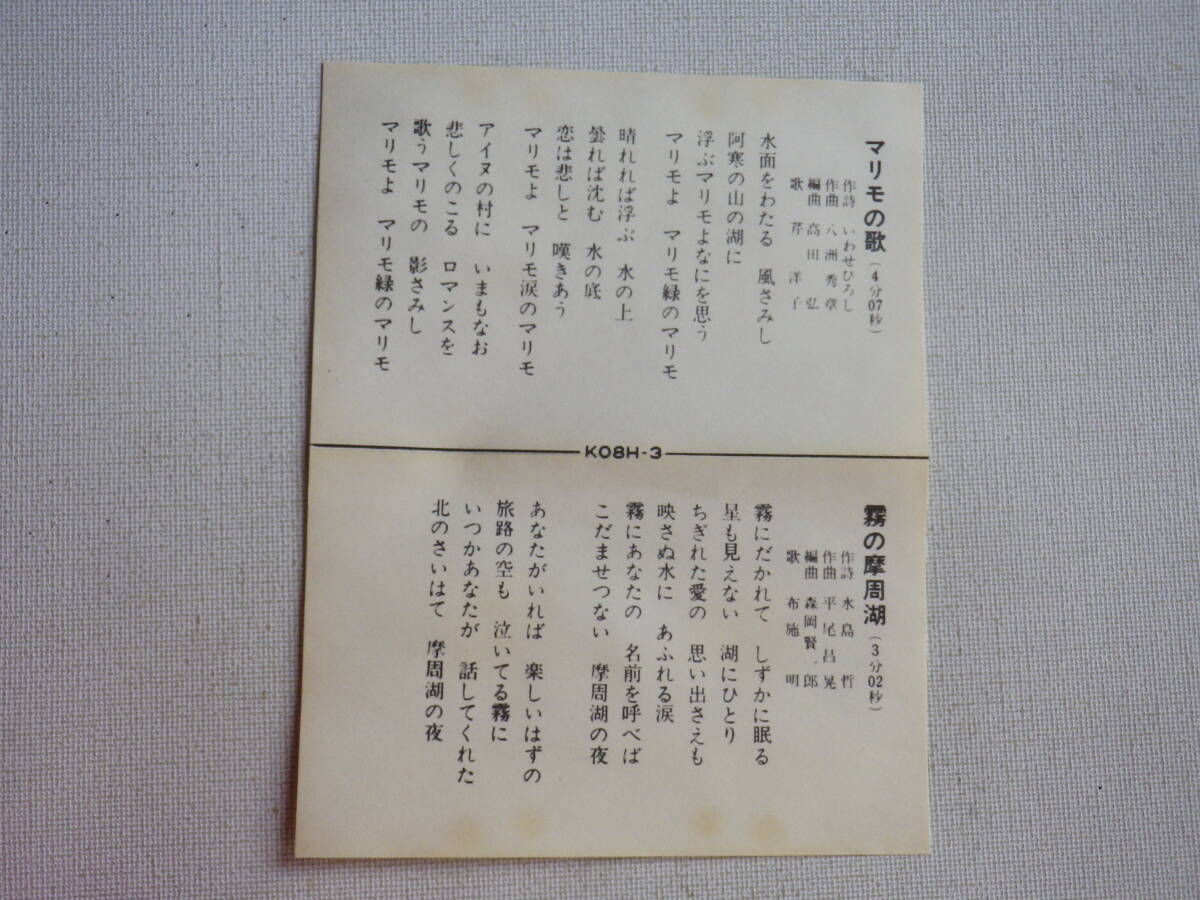 マリモの歌(4分07秒)
作詩 いわせひろし
作曲 八洲秀章
編曲 高田弘
歌 芹洋子
水面をわたる 風さみし
阿寒の山の湖に
浮ぶマリモよなにを思う
マリモよ マリモ緑のマリモ
晴れれば浮ぶ 水の上
曇れば沈む 水の底
恋は悲しと 嘆きあう
マリモよ マリモ涙のマリモ
アイヌの村に いまもなお
悲しくのこる ロマンスを
歌うマリモの 影さみし
マリモよ マリモ緑のマリモ
K08H-3
霧の摩周湖(3分02秒)
作詩 水島哲
作曲 平尾昌晃
編曲 森岡賢一郎
歌 布施明
霧にだかれて しずかに眠る
星も見えない 湖にひとり
ちぎれた愛の 思い出さえも
映さぬ水に あふれる涙
霧にあなたの 名前を呼べば
こだませつない 摩周湖の夜
あなたがいれば 楽しいはずの
旅路の空も 泣いてる霧に
いつかあなたが 話してくれた
北のさいはて 摩周湖の夜